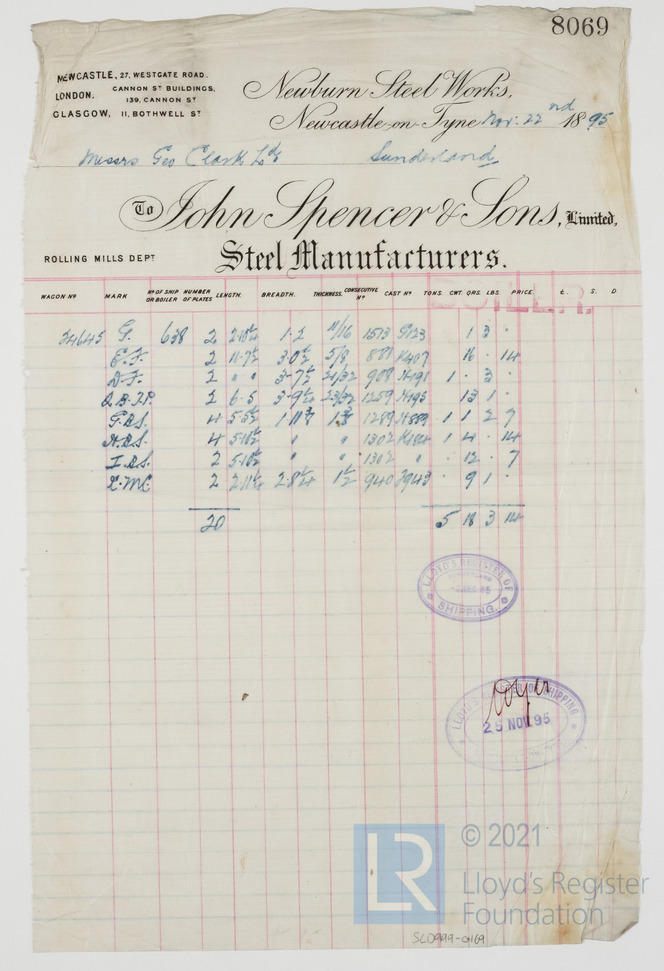 8069
NEWCASTLE, 27, WESTGATE ROAD.
LONDON, CANNON ST BUILDINGS,
139, CANNON ST
GLASGOW, 11, BOTHWELL ST
Newburn Steel Works,
Newcastle-on-Tyne Nov. 22nd 1895
Messrs Geo Clark Ld Sunderland
To John Spencer & Sons, Limited,
Steel Manufacturers.
ROLLING MILLS DEPT
WAGON No MARK No OF SHIP OR BOILER NUMBER OF PLATES LENGTH. BREADTH. THICKNESS. CONSECUTIVE No CAST No TONS. CWT. QRS. LBS. PRICE. £. S. D.
BOILER.
24645 G. 638 2 2·10½ 1·2 11/16 1513 1 3 ·
E.F. 2 11·7½ 3·0½ 5/8 881 K407 16 · 14
D.F. 2 " " 3·7½ 21/32 908 H191 1 · 3 ·
2 6·5 23/32 1259 H195 13 1 ·
G.B.S. 4 5·5½ 1289 H889 1 1 2 7
H.B.S. 4 5·10½ " " 1302 1 4 · 14
I.B.S. 2 5·10½ " " 1302 " · 12 · 7
2 2·11¼ 2·8¼ 1½ 940 · 9 1 ·
20 5 18 3 14
LLOYD'S REGISTER OF
SHIPPING.
LLOYD'S REGISTER OF SHIPPING
25 NOV. 95
LR
© 2021
Lloyd's Register
Foundation
SLD999-0169